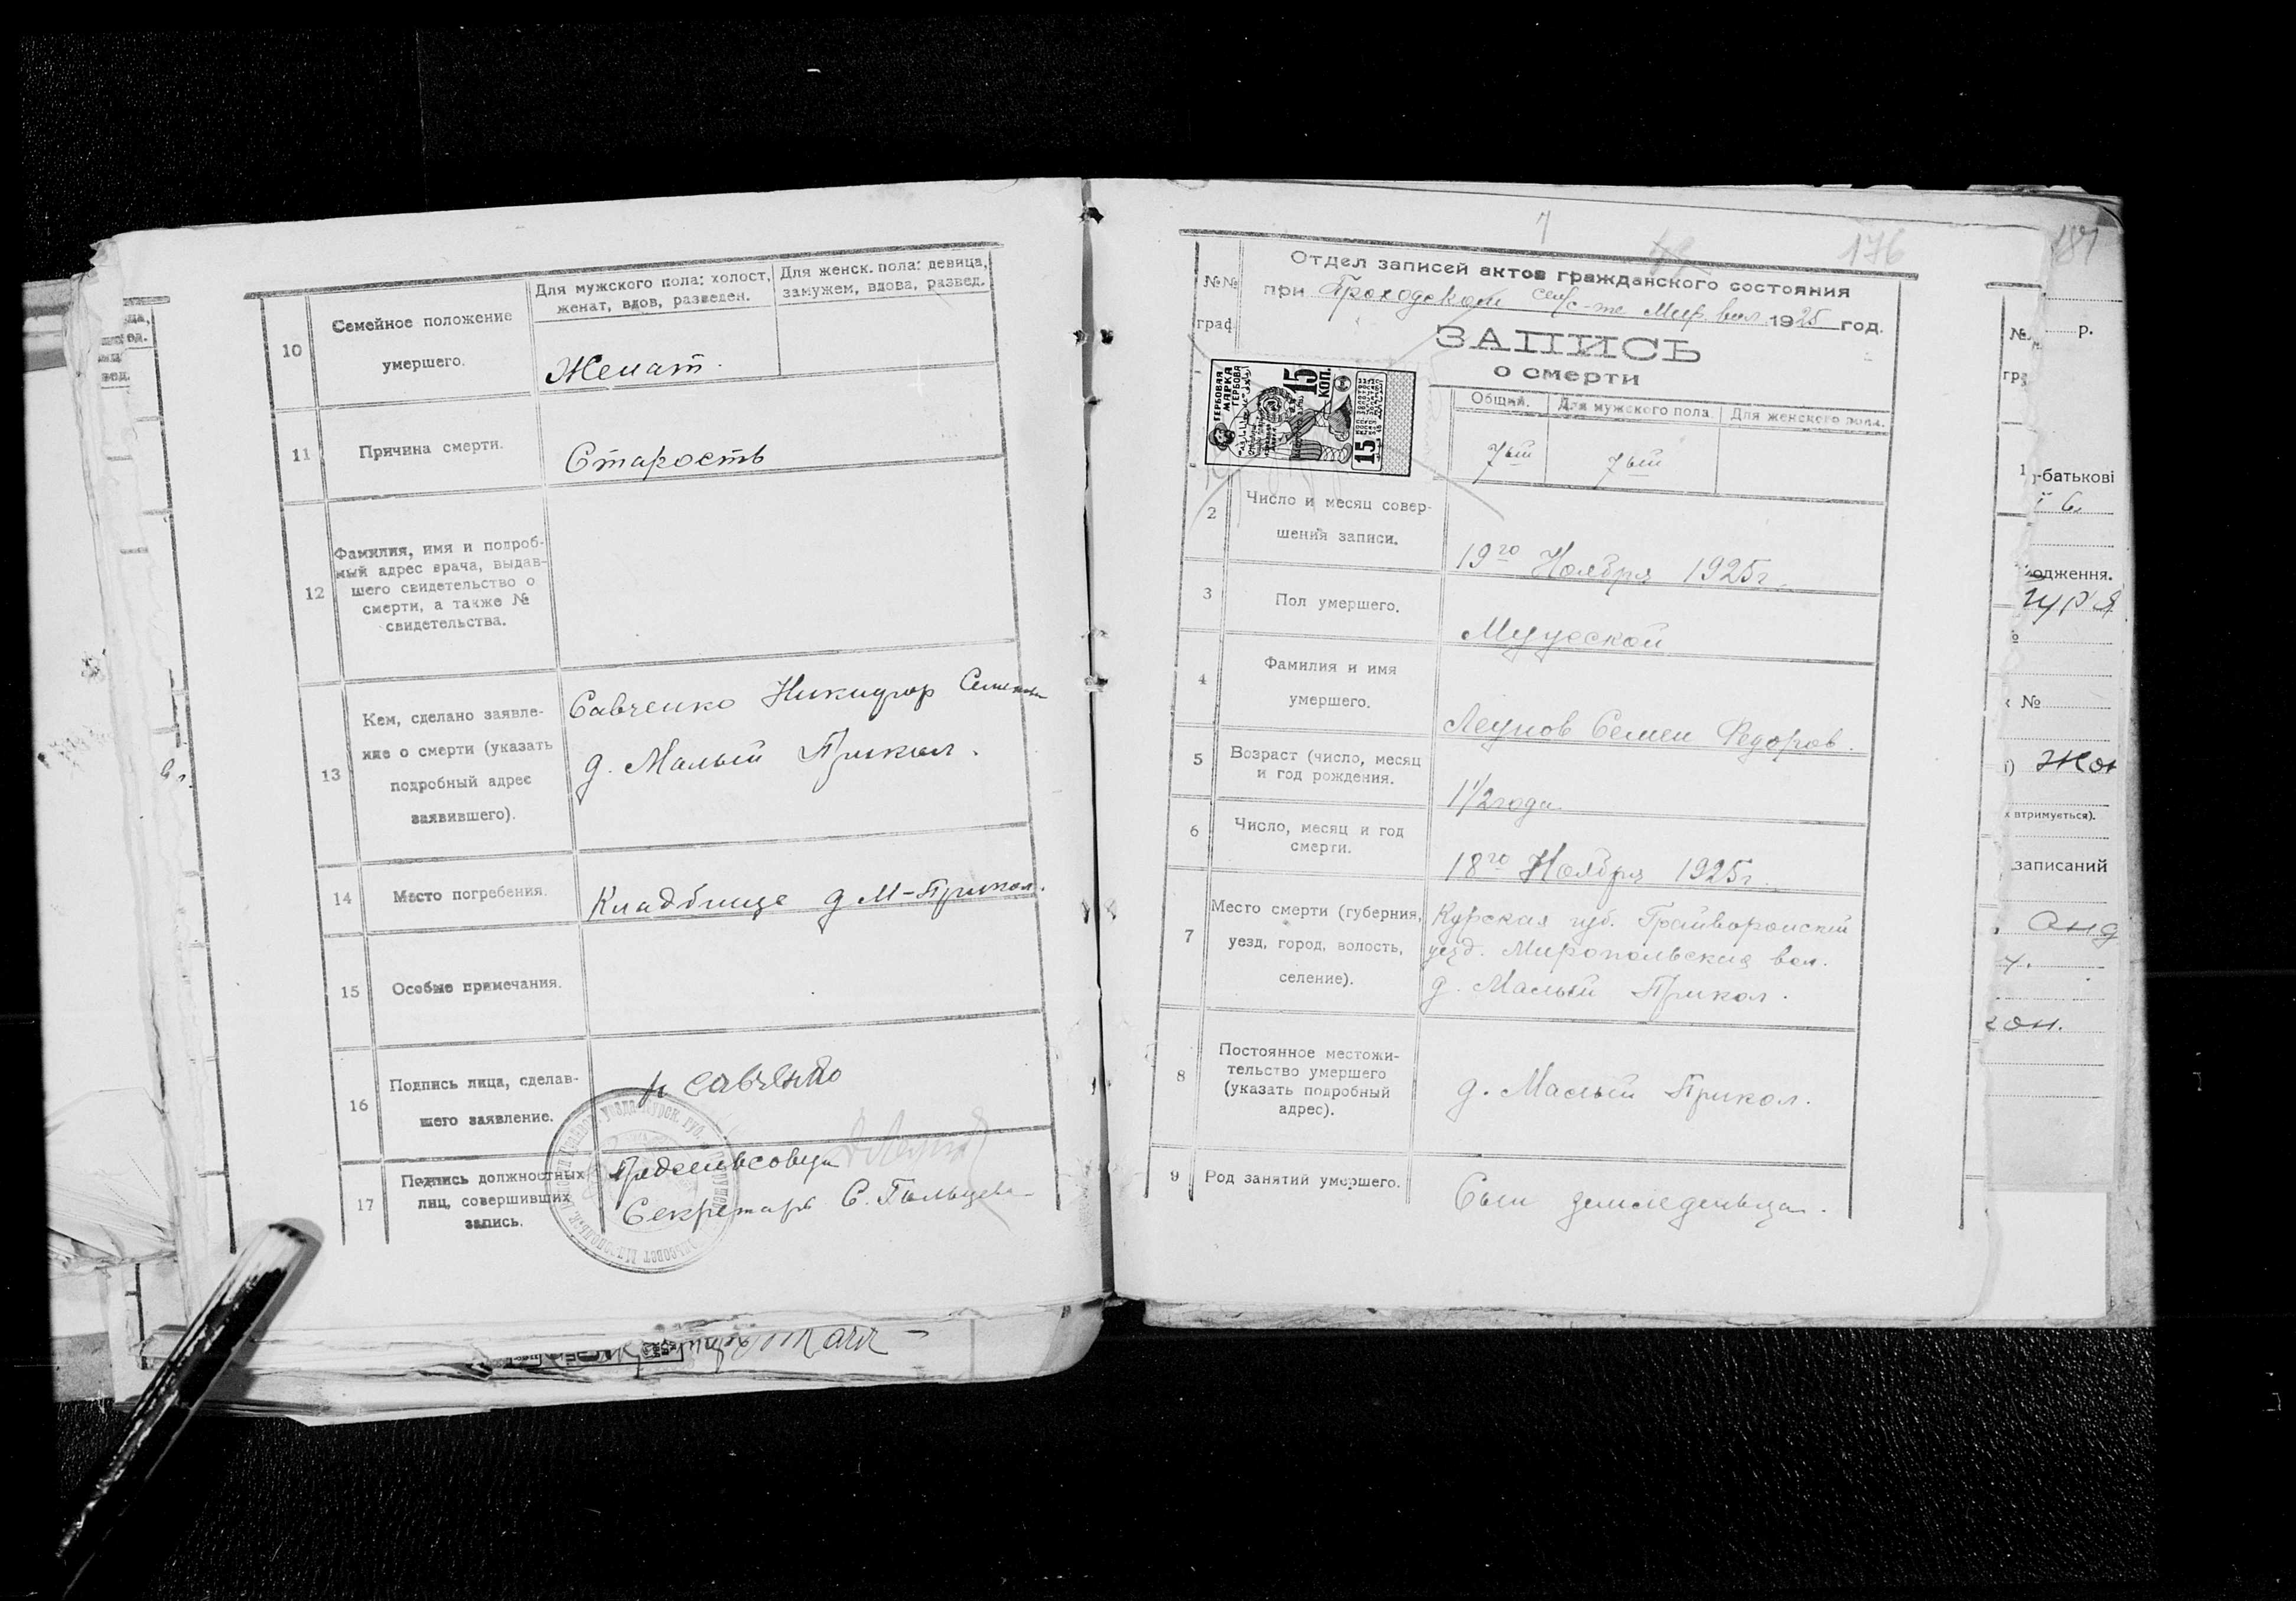 10
Семейное положение
умершего.
Для мужского пола: холост,
женат, вдов, разведен.
Для женск. пола: девица,
замужем, вдова, развед.
Женат.
11
Причина смерти.
Старость
12
Фамилия, имя и подроб-
ный адрес врача, выдав-
шего свидетельство о
смерти, а также №
свидетельства.
13
Кем, сделано заявле-
ние о смерти (указать
подробный адрес
заявившего).
Савченко Никифор Семенов
д. Малый Прикол.
14
Место погребения.
Кладбище д М-Прикол.
15
Особые примечания.
16
Подпись лица, сделав-
шего заявление.
Н Савченко
17
Подпись должностных
лиц, совершивших
запись.
Предсельсовета
Секретарь С. Гольцев
7
176
№№
граф.
Отдел записей актов гражданского состояния
при сель/с-те Мир. вол. 1925 год.
ЗАПИСЬ
о смерти
ГЕРБОВАЯ
МАРКА
ГЕРБОВА
15
КОП.
15
Общий.
Для мужского пола
Для женского пола.
7ый
7ый
2
Число и месяц совер-
шения записи.
19го Ноября 1925г.
3
Пол умершего.
Мужской
4
Фамилия и имя
умершего.
Леунов Семен Федоров.
5
Возраст (число, месяц
и год рождения.
1 1/2 года
6
Число, месяц и год
смерти.
18го Ноября 1925г.
7
Место смерти (губерния,
уезд, город, волость,
селение).
Курская губ. Грайворонский
уезд. Миропольская вол.
д. Малый Прикол.
8
Постоянное местожи-
тельство умершего
(указать подробный
адрес).
д. Малый Прикол.
9
Род занятий умершего.
Сын земледельца.
181
р.
№
1
-батькові
одження.
№
втримується).
записаний